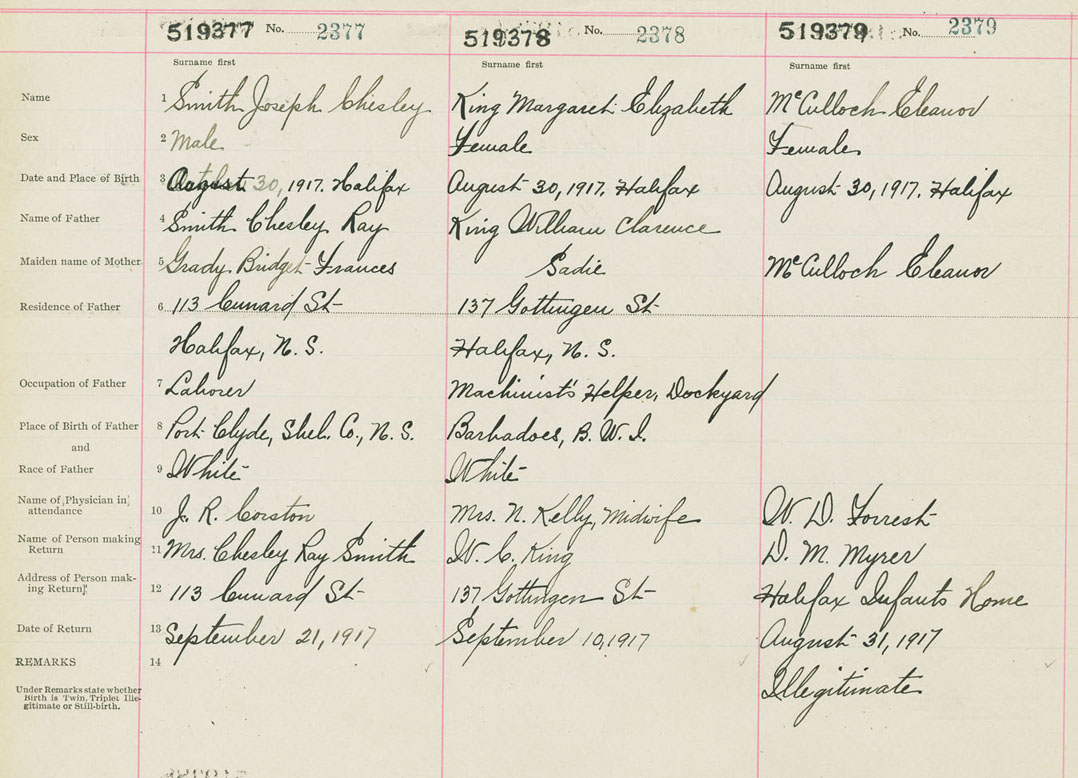 519377 No. 2377 519378 No. 2378 519379 No. 2379
Surname first Surname first Surname first
Name 1 Smith Joseph Chesley King Margaret Elizabeth McCulloch Eleanor
Sex 2 Male Female Female
Date and Place of Birth 3 August 30, 1917. Halifax August 30, 1917. Halifax August 30, 1917. Halifax
Name of Father 4 Smith Chesley Ray King William Clarence
Maiden name of Mother 5 Grady Bridget Frances Sadie McCulloch Eleanor
Residence of Father 6 113 Cunard St 137 Gottingen St
Halifax, N. S. Halifax, N. S.
Occupation of Father 7 Laborer Machinist's Helper, Dockyard
Place of Birth of Father 8 Port Clyde, Shel. Co., N. S. Barbadoes, B. W. I.
and
Race of Father 9 White White
Name of Physician in
attendance 10 J. R. Corston Mrs. N. Kelly, Midwife W. D. Forrest
Name of Person making
Return 11 Mrs. Chesley Ray Smith W. C. King D. M. Myrer
Address of Person mak-
ing Return 12 113 Cunard St 137 Gottingen St Halifax Infants Home
Date of Return 13 September 21, 1917 September 10, 1917 August 31, 1917
REMARKS 14
Under Remarks state whether
Birth is Twin, Triplet Ille-
gitimate or Still-birth. Illegitimate